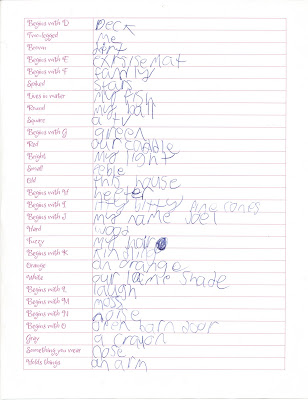 Begins with D Deck
Two-legged me
Brown dirt
Begins with E exrsisemat
Begins with F family
Spiked stars
Lives in water my fish
Round my ball
Square a tv
Begins with G green
Red our
Bright my light
Small peble
Old this house
Begins with H heeter
Begins with I itty bitty pine cones
Begins with J my name Joel
Hard wood
Fuzzy my hair
Begins with K kindling
Orange an orange
White our shade
Begins with L laugh
Begins with M moss
Begins with N none
Begins with O open barn door
Gray a crayon
Something you wear
Holds things an arm